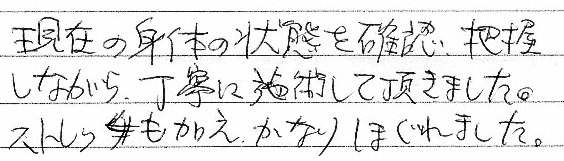 現在の身体の状態を確認、把握
しながら、丁寧に施術して頂きました。
ストレッチも加え、かなりほぐれました。